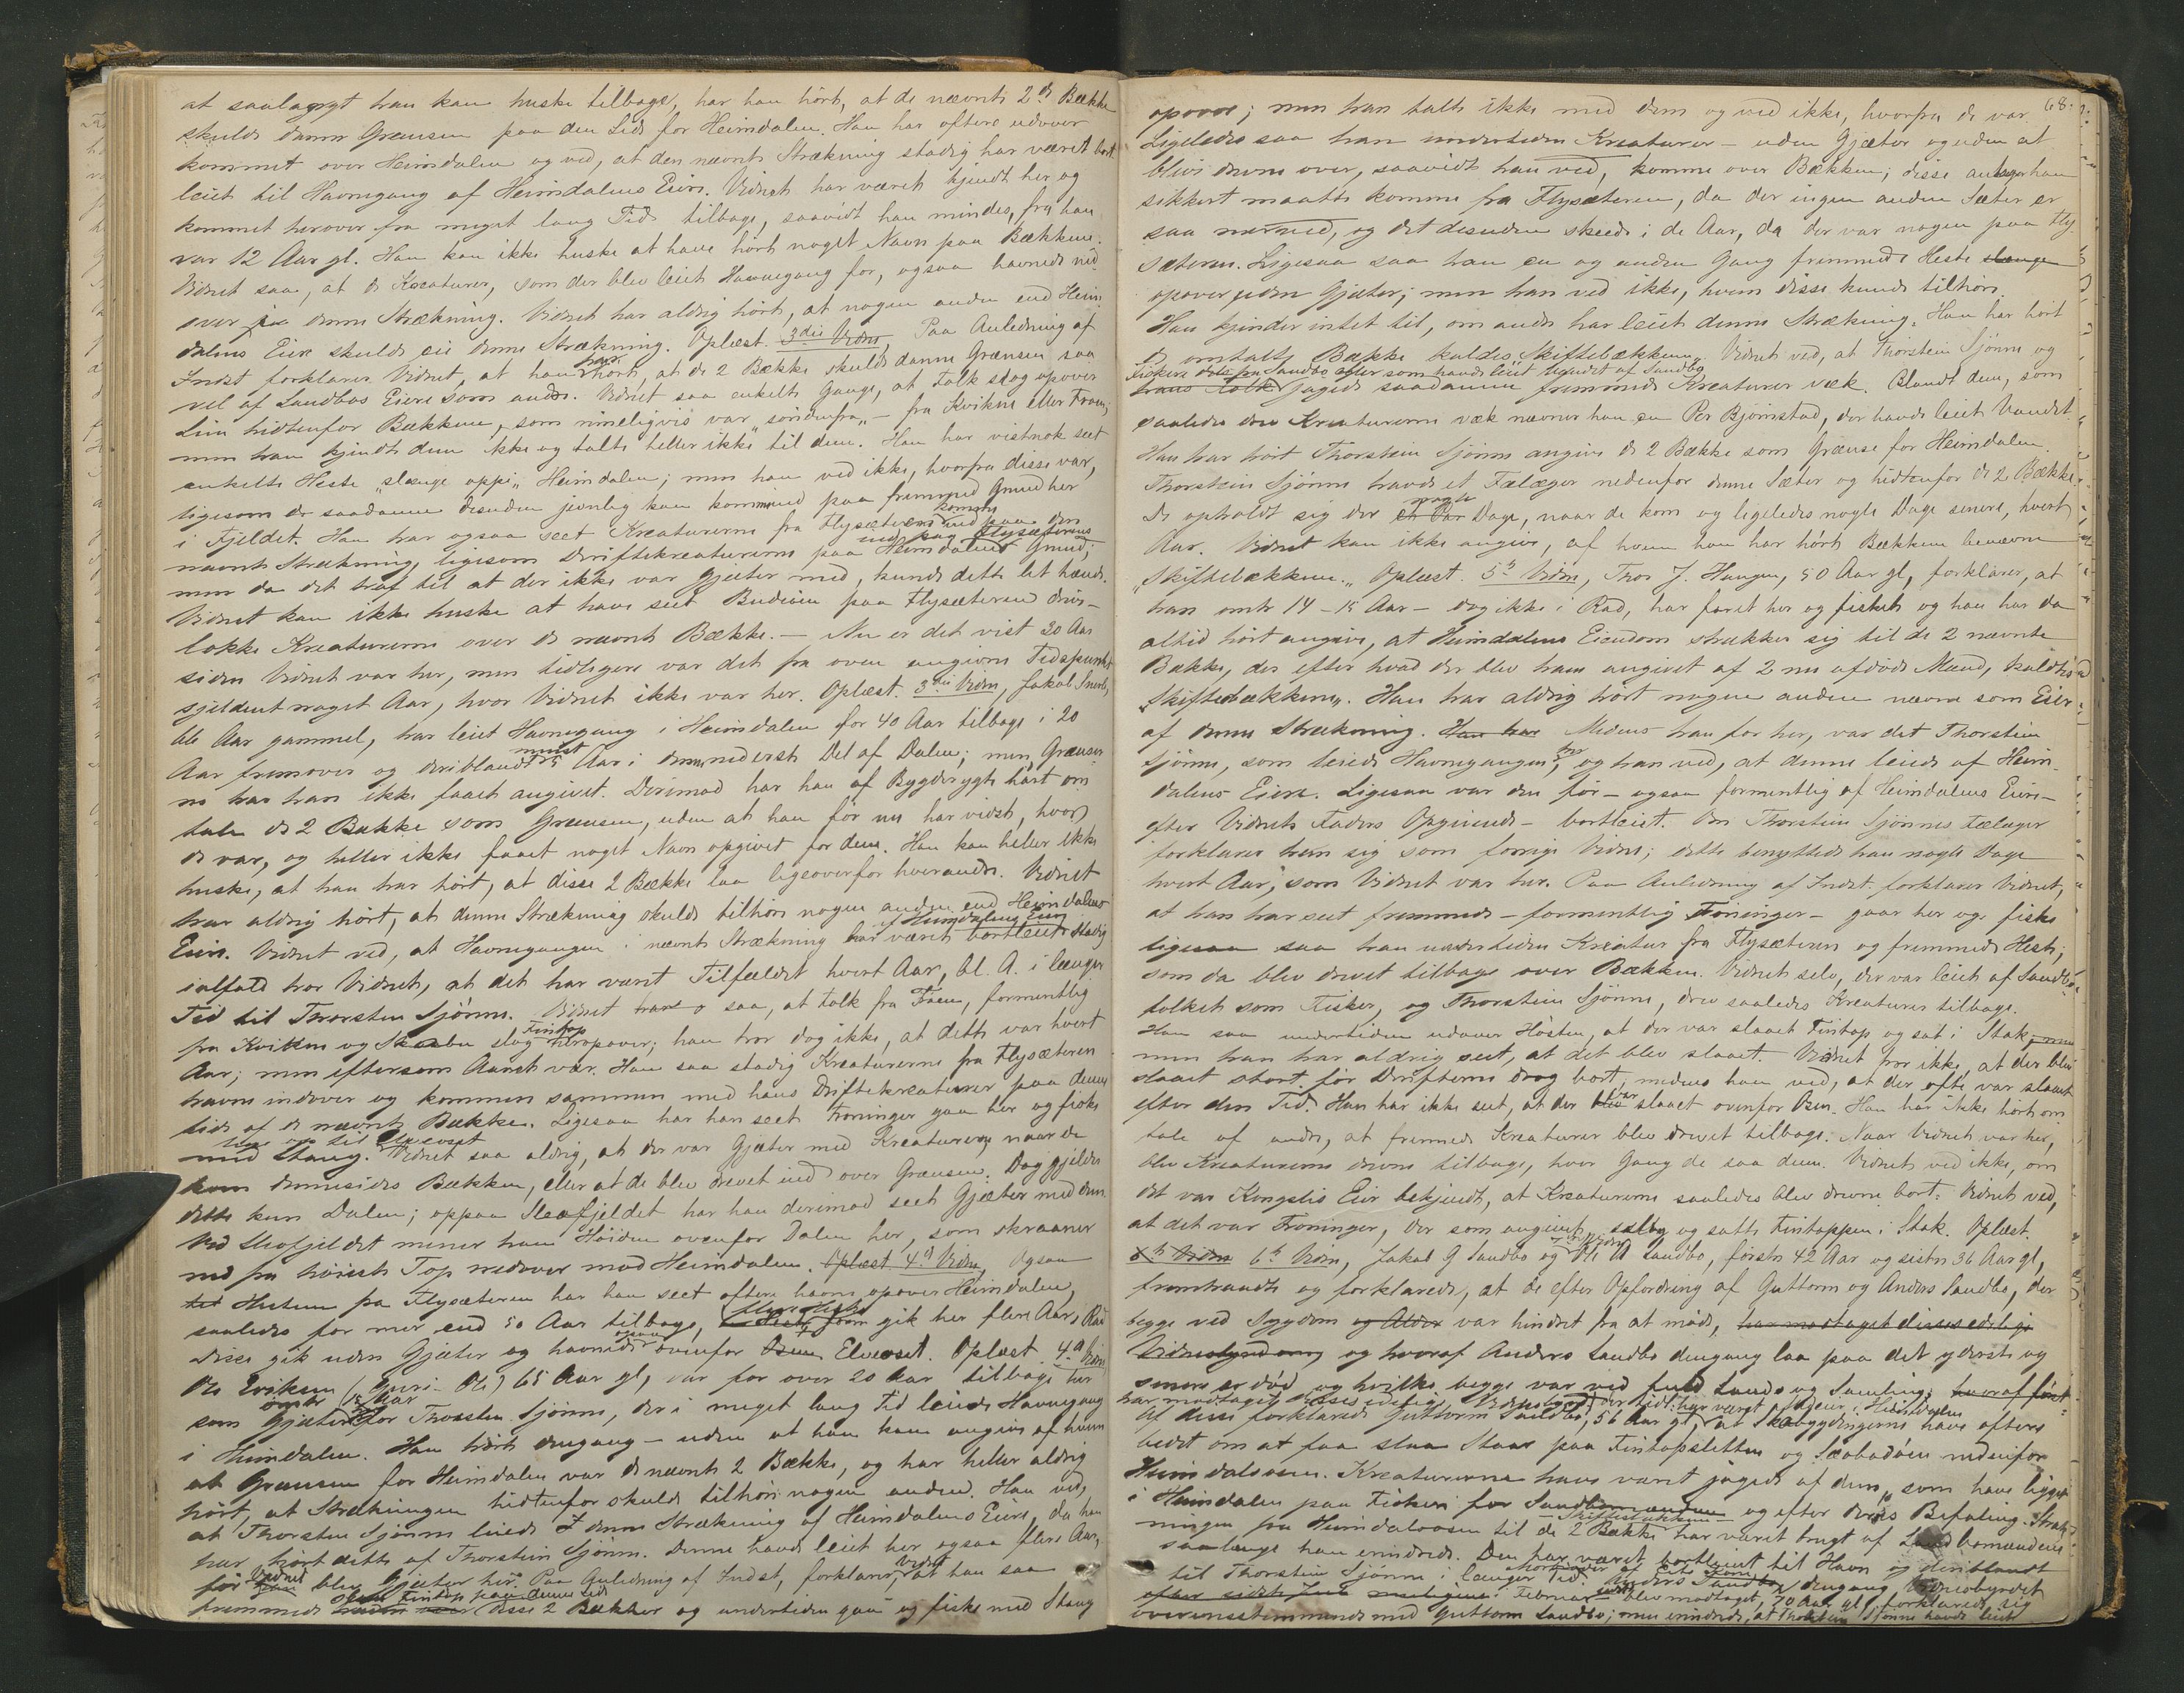 at saalangt han kan huske tilbage, har han hørt, at de nævnte 2de Bække
skulde danne Grænsen paa den Side for Heimdalen. Han har oftere udover
kommet over Heimdalen og ved, at den nævnte Strækning stadig har været bort
leiet til Havnegang af Heimdalens Eiere. Vidnet har været kjendt her og
kommet herover fra meget lang Tid tilbage, saavidt han mindes, fra han
var 12 Aar gl. Han kan ikke huske at have hørt noget Navn paa Bækkene.
Vidnet saa, at de Kreaturer, som der blev leiet Havnegang for, ogsaa havnede ud
over paa denne Strækning. Vidnet har aldrig hørt, at nogen anden end Heim
dalens Eiere skulde eie denne Strækning. Oplæst. 3die Vidne, Paa Anledning af
Indst forklarer Vidnet, at han har hørt, at de 2 Bække skulde danne Grænsen saa
vel af Sandbos Eiere som andre. Vidnet saa enkelte Gange, at Folk slog opover
Lien hidtenfor Bækkene, som rimeligvis var "søndenfra" - fra Kvikne eller Fron;
men han kjendte dem ikke og talte heller ikke til dem. Han har vistnok seet
enkelte Heste "slænge oppi" Heimdalen; men han ved ikke, hvorfra disse var,
ligesom de saadanne desuden jevnlig kan komme ind paa fremmed Grund her
i Fjeldet. Han har ogsaa seet Kreaturerne fra Flysæteren komme ind paa den
nævnte Strækning, ligesom Driftekreaturerne ind paa Flysæterens Grund;
men da det traf til at der ikke var Gjæter med, kunde dette let hænde.
Vidnet kan ikke huske at have seet Budeien paa Flysæteren drive -
lokke Kreaturerne over de nævnte Bække. - Nu er det vist 20 Aar
siden Vidnet var her, men tidligere var det fra oven angivne Tidspunkt
sjeldent noget Aar, hvor Vidnet ikke var her. Oplæst. 3die Vidne, Jakob
Aar gammel, har leiet Havnegang i Heimdalen for 40 Aar tilbage i 20
Aar fremover og deriblandt mindst 5 Aar i den nederste Del af Dalen; men Grænser
ne har han ikke faaet angivet. Derimod har han af Bygderygte hørt om
tale de 2 Bække som Grænsen, uden at han før nu har vidst, hvor
de var, og heller ikke faaet noget Navn opgivet for dem. Han kan heller ikke
huske, at han har hørt, at disse 2 Bække laa ligeoverfor hverandre. Vidnet
har aldrig hørt, at denne Strækning skulde tilhøre nogen anden end Heimdalens
Eiere. Vidnet ved, at Havnegangen i nævnte Strækning har været af Heimdalens Eiere bortleiet stadig
ialfald tror Vidnet, at det har været Tilfældet hvert Aar, bl. A. i længer
Tid til Thorsten Sjønne. Vidnet saa, at Folk fra Fron, formentlig
fra Kvikne og Skaabu slog Fintop heropover; han tror dog ikke, at dette var hvert
Aar; men eftersom Aaret var. Han saa stadig Kreaturerne fra Flysæteren
havne indover og kommen sammen med hans Driftekreaturer paa denne
side af de nævnte Bække. Ligesaa har han seet Froninger gaa her og fiske
med Stang lige op til Elveoset. Vidnet saa aldrig, at der var Gjæter med Kreaturerne, naar de
kom dennesides Bækken, eller at de blev drevet ind over Grænsen. Dog gjelder
dette kun Dalen; oppaa Sleafjeldet har han derimod seet Gjæter med dem.
Ved Sleafjeldet mener han Høiden ovenfor Dalen her, som skraaner
ned fra høieste Top nedover mod Heimdalen. Oplæst 4de Vidne, Ogsaa
Hestene fra Flysæteren har han seet oftere havne opover Heimdalen,
saaledes for mer end 50 Aar tilbage, gik her flere Aar,
Disse gik uden Gjæter og havnede ogsaa ovenfor Elveoset. Oplæst. 4de Vidne
Ole Eriksen (Guri-Ole) 65 Aar gl, var for over 20 Aar tilbage her
som Gjæter omtr 15 Aar for Thorsten Sjønne, der i meget lang Tid leiede Havnegang
i Heimdalen. Han hørte dengang - uden at han kan angive af hvem
at Grænsen for Heimdalen var de nævnte 2 Bække, og har heller aldrig
hørt, at Strækningen hidtenfor skulde tilhøre nogen anden. Han ved,
at Thorsten Sjønne leiede denne Strækning af Heimdalens Eiere, da han
har hørt dette af Thorstein Sjønne. Denne havde leiet her ogsaa flere Aar,
før Vidnet blev Gjæter her. Paa Anledning af Indst, forklarer Vidnet at han saa
fremmede slaa Fintop paa denne Side disse 2 Bækker og undertiden gaa og fiske med Stang
68.
opover; men han talte ikke med dem og ved ikke, hvorfra de var.
Ligeledes saa han undertiden Kreaturer - uden Gjæter og uden at
blive drevne over, saavidt han ved, komme over Bækken; disse antager han
sikkert maatte komme fra Flysæteren, da der ingen anden Sæter er
saa nærved, og det desuden skeede i de Aar, da der var nogen paa Fly-
sæteren. Ligesaa saa han en og anden Gang fremmede Heste slænge
opover uden Gjæter; men han ved ikke, hvem disse kunde tilhøre.
Han kjender intet til, om andre har leiet denne Strækning. Han har hørt
de omtalte Bække kaldes "Skiftebækkene". Vidnet ved, at Thorstein Sjønne og
Fiskere dels fra Sandbo eller som havde leiet Vandet af Sandbo
hans Folk jagede saadanne fremmede Kreaturer væk. Blandt dem, som
saaledes drev Kreaturerne væk nævner han en Per Bjørnstad, der havde leiet Vandet.
Han har hørt Thorstein Sjønne angive de 2 Bække som Grænse for Heimdalen.
Thorstein Sjønne havde et Fælæger nedenfor denne Sæter og hidtenfor de 2 Bække.
De opholdt sig der nogle Dage, naar de kom og ligeledes nogle Dage senere, hvert
Aar. Vidnet kan ikke angive, af hvem han har hørt Bækkene benævne
"Skiftebækkene." Oplæst. 5te Vidne, Thor J. Haugen, 50 Aar gl, forklarer, at
han omtr 14-15 Aar - dog ikke i Rad, har faret her og fisket og han har da
altid hørt angive, at Heimdalens Eiendom strækker sig til de 2 nævnte
Bække, der efter hvad der blev ham angivet af 2 nu afdøde Mænd, kaldtes
"Skiftebækkene". Han har aldrig hørt nogen anden nævne som Eier
af denne Strækning. Han har Medens han for her, var det Thorstein
Sjønne, som leiede Havnegangen her, og han ved, at denne leiede af Heim-
dalens Eiere. Ligesaa var den før - ogsaa formentlig af Heimdalens Eiere -
efter Vidnets Faders Opgivende - bortleiet. Om Thorstein Sjønnes Fælæger
forklarer han sig som forrige Vidne; dette benyttede han nogle Dage
hvert Aar, som Vidnet var her. Paa Anledning af Indst. forklarer Vidnet,
at han har seet fremmede - formentlig Froninger - gaar her og fiske
ligesaa saa han undertiden Kreatur fra Flysæteren og fremmede Heste,
som da blev drevet tilbage over Bækken. Vidnet selv, der var leiet af Sandbo-
folket som Fisker, og Thorstein Sjønne, drev saaledes Kreaturer tilbage.
Han saa undertiden udover Høsten, at der var slaaet Fintop og sat i Stak, men
men han har aldrig seet, at det blev slaaet. Vidnet tror ikke, at der blev
slaaet stort før Drifterne drog bort, medens han ved, at der ofte var slaaet
efter den Tid. Han har ikke seet, at der var slaaet ovenfor Osen. Han har ikke hørt om
tale af andre, at fremmede Kreaturer blev drevet tilbage. Naar Vidnet var her,
blev Kreaturerne drevne tilbage, hver Gang de saa dem. Vidnet ved ikke, om
det var Kongslis Eier bekjendt, at Kreaturerne saaledes blev drevne bort. Vidnet ved,
at det var Froninger, der som angivet, slog og satte Fintoppen i Stak. Oplæst.
6te Vidne, Jakob G Sandbo og 7de Vidne Ole A Sandbo, første 42 Aar og sidste 36 Aar gl,
fremstaaede og forklarede, at de efter Opfordring af Guttorm og Anders Sandbo, der
begge ved Sygdom og Alder var hindret fra at møde, har modtaget disses edelige
Vidnesbyrd og hvoraf Anders Sandbo dengang laa paa det yderste og
senere er død og hvilke begge var ved fuld Sands og Samling; hvoraf først-
har modtaget disses edelige Vidnesbyrd
Af disse forklarede Guttorm Sandbo, 56 Aar gl, at Skabygdingerne have oftere
bedet om at faa slaa Staar paa Fintopsletten og Sæbodøen nedenfor
Heimdalsosen. Kreaturerne have været jagede af dem, som have ligget
i Heimdalen paa Fiskeri for Sandbomændene og efter deres Befaling. Stræk-
ningen fra Heimdalsosen til de 2 Bække - Skiftebækkene - har været brugt af Sandbomændene
saalænge han erindrede. Den har været bortleiet til Havn og deriblandt
til Thorstein Sjønne i længer Tid. Anders Sandbo, dengang Vidnesbyrdet
blev modtaget, 70 Aar gl, forklarede sig
overensstemmende med Guttorm Sandbo; men erindrede, at Thorstein Sjønne havde leiet